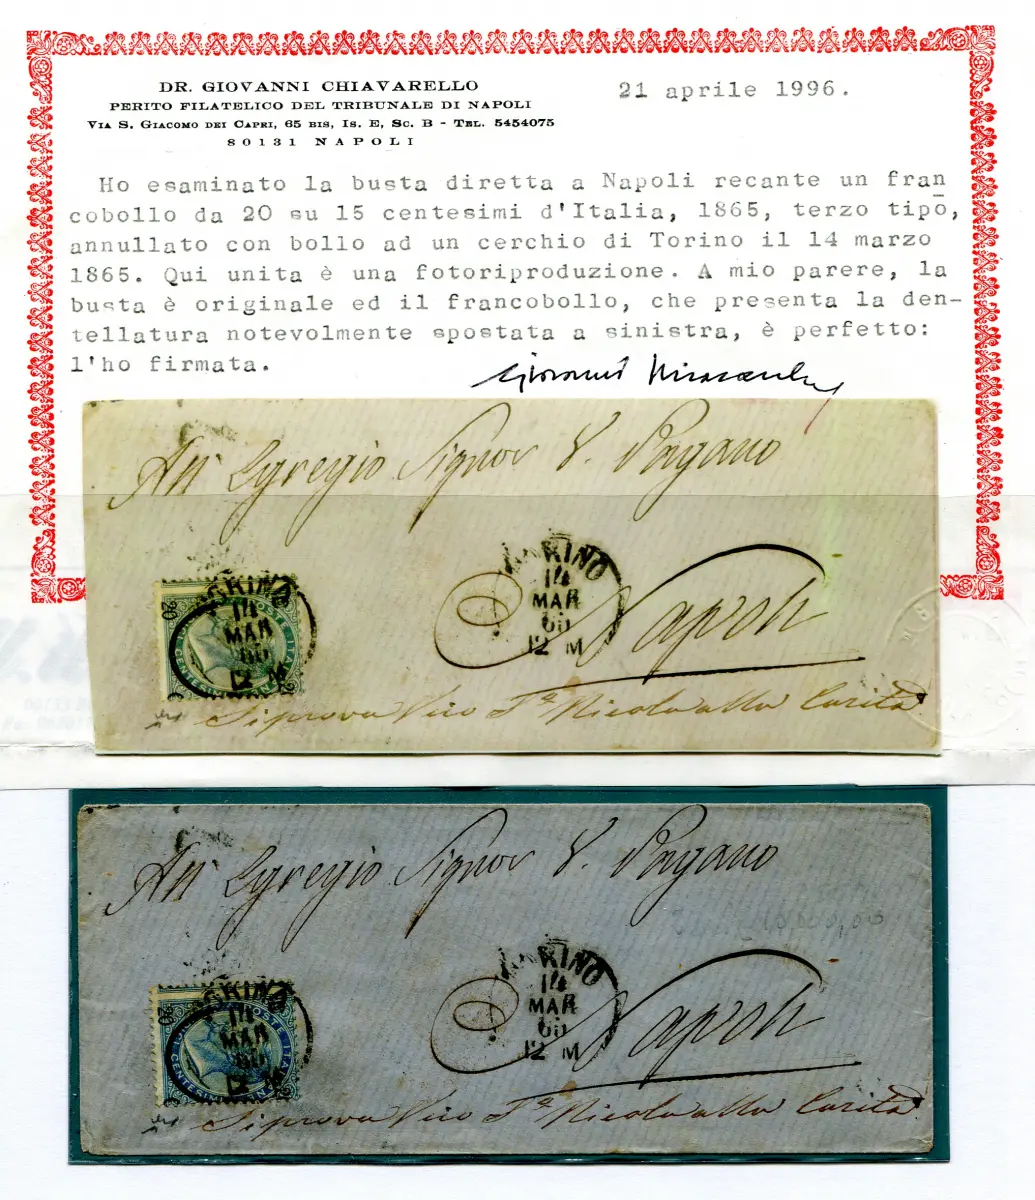 DR. GIOVANNI CHIAVARELLO
PERITO FILATELICO DEL TRIBUNALE DI NAPOLI
VIA S. GIACOMO DEI CAPRI, 65 BIS, IS. E, SC. B - TEL. 5454075
80131 NAPOLI
21 aprile 1996.
Ho esaminato la busta diretta a Napoli recante un fran
cobollo da 20 su 15 centesimi d'Italia, 1865, terzo tipo,
annullato con bollo ad un cerchio di Torino il 14 marzo
1865. Qui unita è una fotoriproduzione. A mio parere, la
busta è originale ed il francobollo, che presenta la den-
tellatura notevolmente spostata a sinistra, è perfetto:
l'ho firmata.
Giovanni
All Egregio Signor V. Pagano
TORINO
14
MAR
65
12 M
TORINO
14
MAR
65
12 M
20
POSTE ITAL
CENTESIMI
Napoli
Si prova Vico Sª Nicola alla Carità
All Egregio Signor V. Pagano
10,000,00
TORINO
14
MAR
65
12 M
TORINO
14
MAR
65
12 M
20
POSTE ITAL
CENTESIMI
Napoli
Si prova Vico Sª Nicola alla Carità